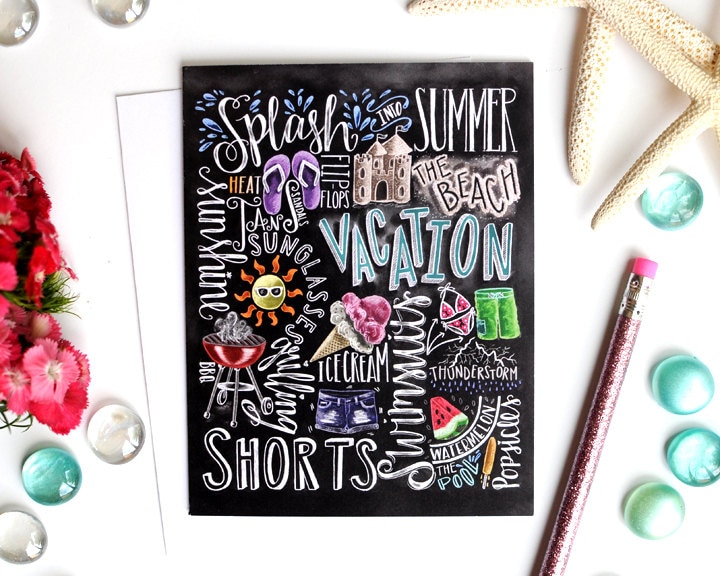 Splash
INTO
SUMMER
HEAT
FLIP-FLOPS
SANDALS
THE BEACH
sunshine
TAN
SUNGLASSES
VACATION
BBQ
Grilling
ICE CREAM
Swimsuits
THUNDERSTORM
SHORTS
WATERMELON
THE POOL
POPSICLES